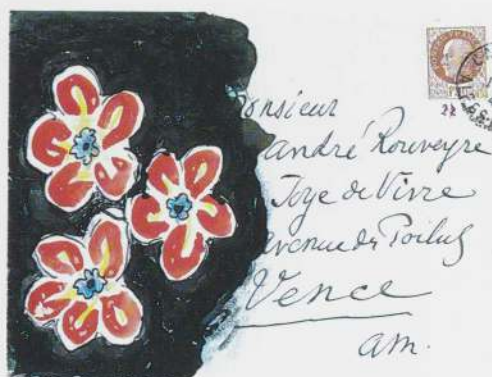 Monsieur
andré Rouveyre
Joye de Vivre
avenue des Poilus
Vence
am.